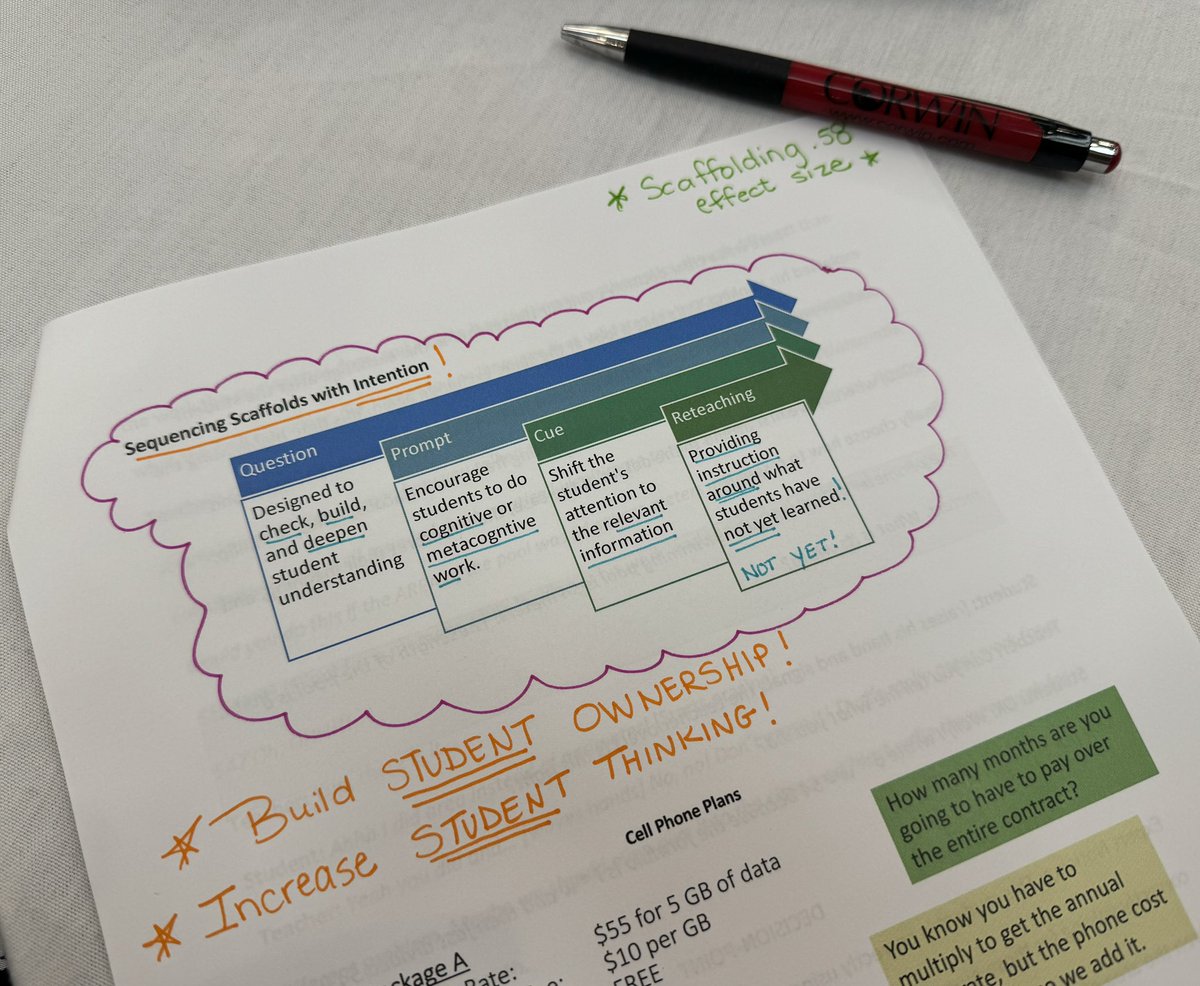 CORWIN
www.corwin.com
* Scaffolding .58
effect size *
Sequencing Scaffolds with Intention !
Question
Designed to
check, build,
and deepen
student
understanding
Prompt
Encourage
students to do
cognitive or
metacogntive
work.
Cue
Shift the
student's
attention to
the relevant
information
Reteaching
Providing
instruction
around what
students have
not yet learned.!
NOT YET!
* Build STUDENT OWNERSHIP!
* Increase STUDENT THINKING!
Cell Phone Plans
ckage A
Rate:
$55 for 5 GB of data
$10 per GB
FREE
How many months are you
going to have to pay over
the entire contract?
You know you have to
multiply to get the annual
but the phone cost
we add it.